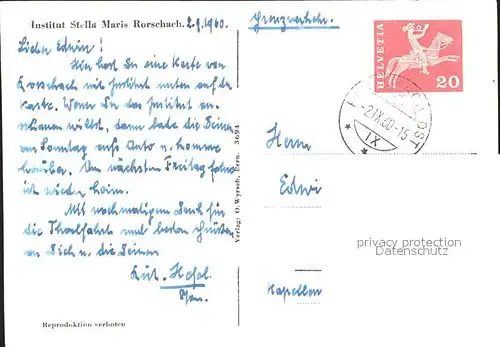 Institut Stella Maris Rorschach. 2.9.1960.
Lieber Edwin!
Hier hast Du eine Karte von
Rorschach mit Institut unten auf der
Karte. Wenn Du das Institut an-
schauen willst, dann lade die Deinen
am Sonntag aufs Auto u. komme
herüber. Am nächsten Freitag fahre
ich wieder heim.
Mit nochmaligem Dank für
die Thalfahrt und besten Grüßen
an Dich u. die Deinen
Verlag: O. Wyrsch, Bern. 3694
Reproduktion verboten
Grenzverkehr.
HELVETIA
20
-2.IX.60-15
IX
OST
Herrn
Edwi
Kapellen
privacy protection
Datenschutz